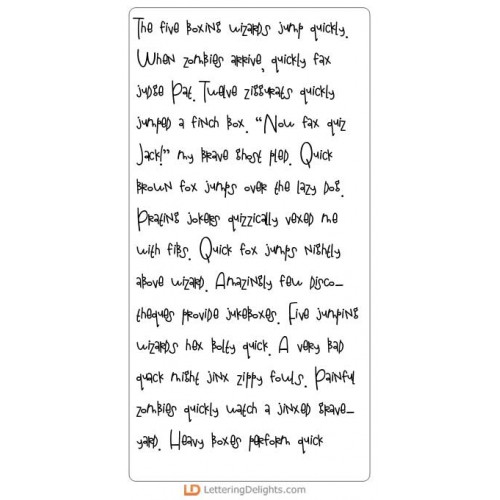 The five boxing wizards jump quickly.
When zombies arrive, quickly fax
judge Pat. Twelve ziggurats quickly
jumped a finch box. “Now fax quiz
Jack!” my brave ghost pled. Quick
brown fox jumps over the lazy dog.
Prating jokers quizzically vexed me
with fibs. Quick fox jumps nightly
above wizard. Amazingly few disco–
theques provide jukeboxes. Five jumping
wizards hex bolty quick. A very bad
quack might jinx zippy fowls. Painful
zombies quickly watch a jinxed grave–
yard. Heavy boxes perform quick
LD LetteringDelights.com